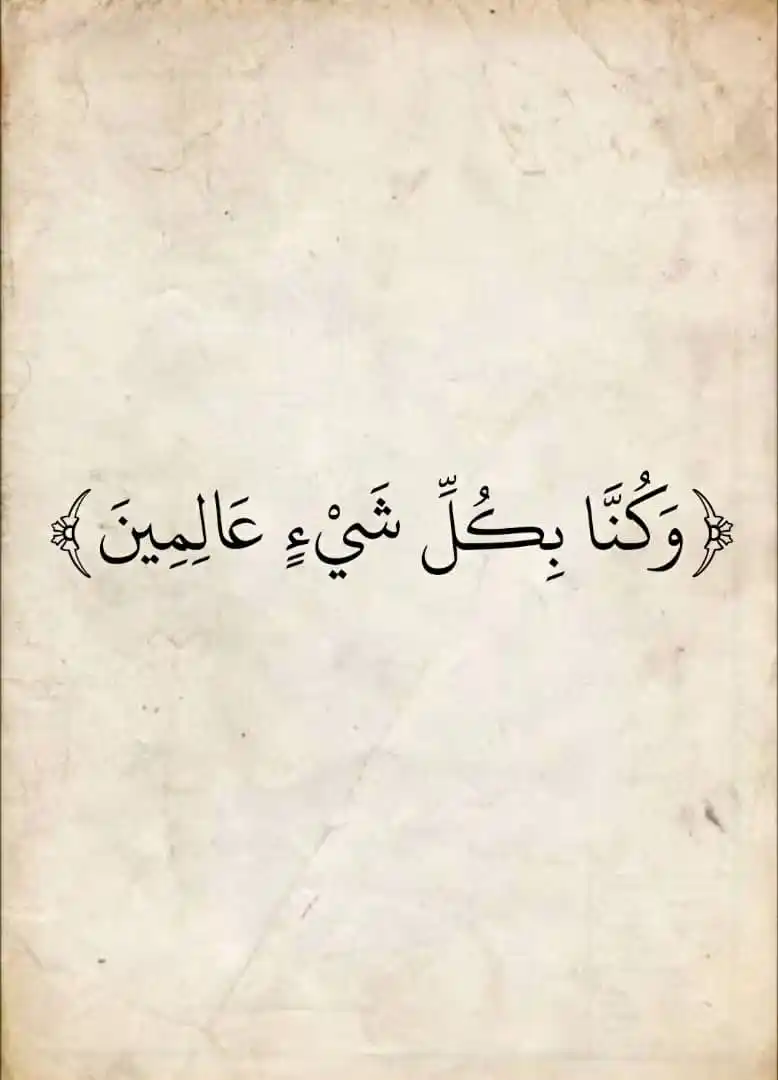 ﴿وَكُنَّا بِكُلِّ شَيْءٍ عَالِمِينَ﴾